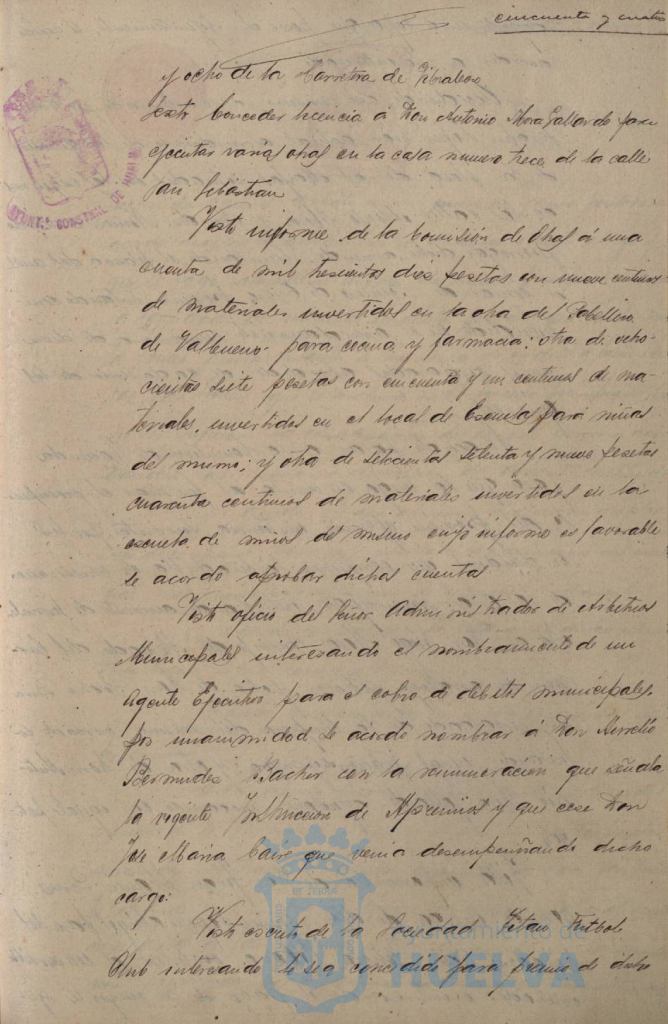 cincuenta y cuatro
y ocho de la Carretera de Gibraleon
Conceder licencia á Don Antonio Mora Gallardo para
ejecutar varias obras en la casa numero trece de la calle
San Sebastian
Visto informe de la Comisión de Obras á una
cuenta de mil trescientas diez pesetas con nueve centimos
de materiales invertidos en la obra del Pabellon
de Valbueno para cocina y farmacia; otra de ocho-
cientas siete pesetas con cincuenta y un centimos de ma-
teriales, invertidos en el local de Escuelas para niñas
del mismo; y otra de setecientas setenta y nueve pesetas
cuarenta centimos de materiales invertidos en la
escuela de niños del mismo cuyo informe es favorable
se acordo aprobar dichas cuentas
Visto oficio del Señor Administrador de Arbitrios
Municipales interesando el nombramiento de un
Agente Ejecutivo para el cobro de debitos municipales
por unanimidad se acordo nombrar á Don Aurelio
Bermudez con la remuneracion que señala
la vigente Instruccion de Apremios y que cese Don
Jose Maria que venia desempeñando dicho
cargo.
Visto escrito de la Sociedad Titan Futbol
Club interesando le sea concedido para premio de dicho
AYUNT.º CONSTNAL DE HUELVA
Ayuntamiento de
HUELVA